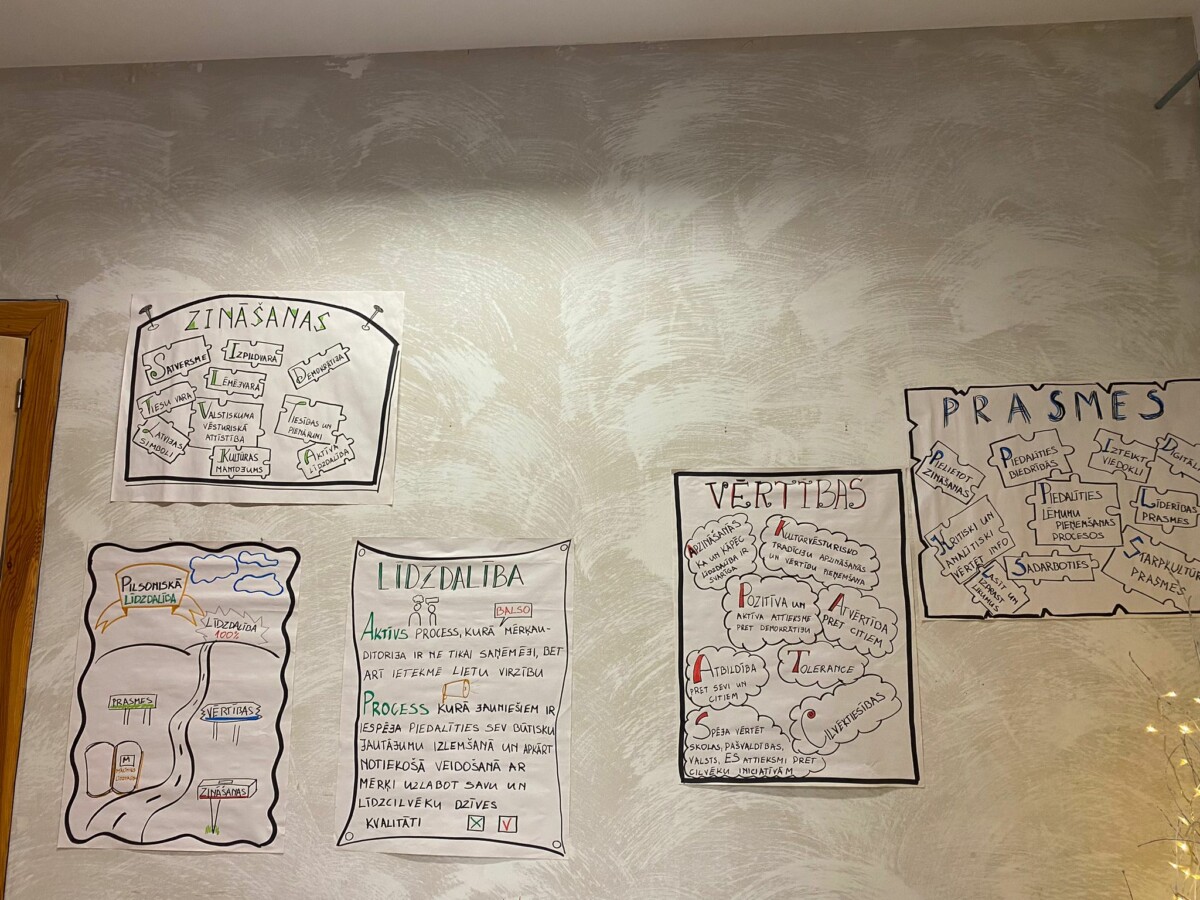 ZINĀŠANAS
SATVERSME
IZPILDVARA
DEMOKRĀTIJA
LĒMĒJVARA
TIESU VARA
VALSTISKUMA
VĒSTURISKĀ
ATTĪSTĪBA
TIESĪBAS UN
PIENĀKUMI
LATVIJAS
SIMBOLI
KULTŪRAS
MANTOJUMS
AKTĪVA
LĪDZDALĪBA
PILSONISKĀ
LĪDZDALĪBA
LĪDZDALĪBA
100%
PRASMES
VĒRTĪBAS
M
ZINĀŠANAS
LĪDZDALĪBA
BALSO
AKTĪVS PROCESS, KURĀ MĒRĶAU-
DITORIJA IR NE TIKAI SAŅĒMĒJI, BET
ARĪ IETEKMĒ LIETU VIRZĪBU
PROCESS KURĀ JAUNIEŠIEM IR
IESPĒJA PIEDALĪTIES SEV BŪTISKU
JAUTĀJUMU IZLEMŠANĀ UN APKĀRT
NOTIEKOŠĀ VEIDOŠANĀ AR
MĒRĶI UZLABOT SAVU UN
LĪDZCILVĒKU DZĪVES
KVALITĀTI
VĒRTĪBAS
APZINĀŠANĀS
KA UN KĀPĒC
LĪDZDALĪBA IR
SVARĪGA
KULTŪRVĒSTURISKO
TRADĪCIJU APZINĀŠANĀS
UN VĒRTĪBU PIEŅEMŠANA
POZITĪVA UN
AKTĪVA ATTIEKSME
PRET DEMOKRĀTIJU
ATVĒRTĪBA
PRET CITIEM
ATBILDĪBA
PRET SEVI UN
CITIEM
TOLERANCE
CILVĒKTIESĪBAS
SPĒJA VĒRTĒT
SKOLAS, PAŠVALDĪBAS,
VALSTS, ES ATTIEKSMI PRET
CILVĒKU INICIATĪVĀM
PRASMES
PIELIETOT
ZINĀŠANAS
PIEDALĪTIES
BIEDRĪBĀS
IZTEIKT
VIEDOKLI
DIGITĀL
KRITISKI UN
ANALĪTISKI
VĒRTĒT INFO
PIEDALĪTIES
LĒMUMU
PIEŅEMŠANAS
PROCESOS
LĪDERĪBAS
PRASMES
LASĪT UN
IZPRAST
LIKUMUS
SADARBOTIES
STARPKULTŪR
PRASMES